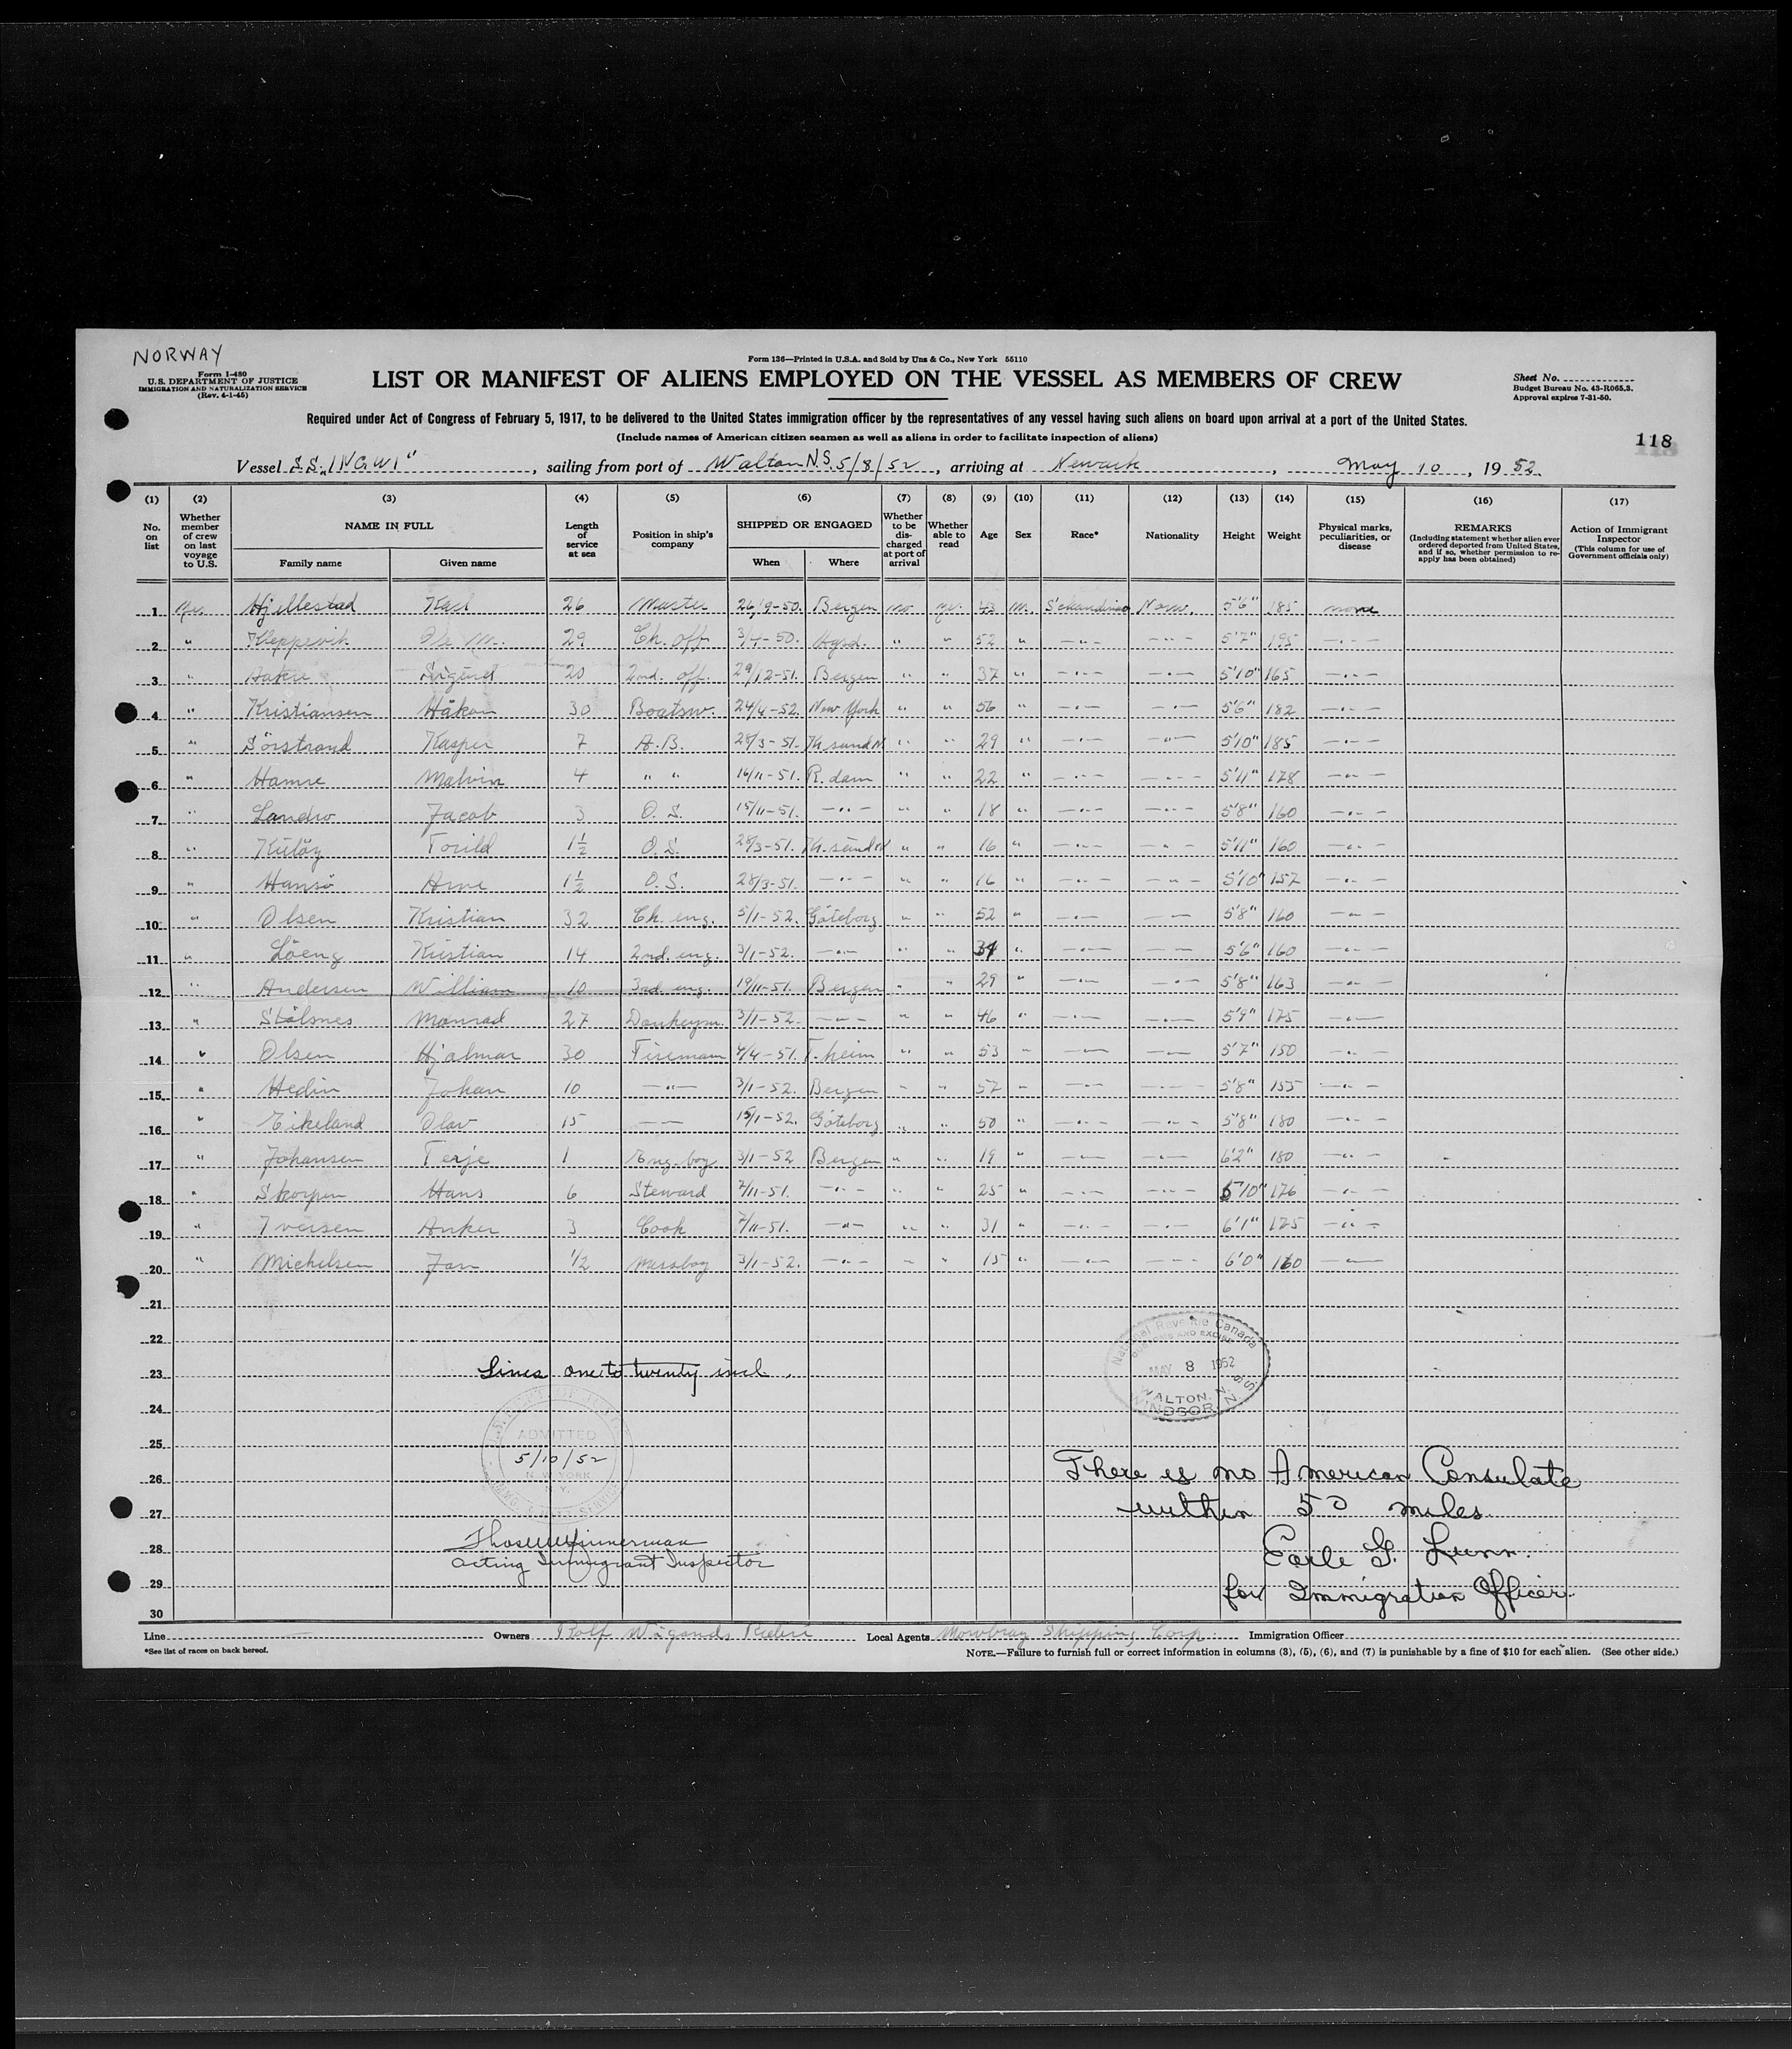 NORWAY
Form I-480
U.S. DEPARTMENT OF JUSTICE
IMMIGRATION AND NATURALIZATION SERVICE
(Rev. 4-1-45)
Form 136—Printed in U.S.A. and Sold by Unz & Co., New York 55110
LIST OR MANIFEST OF ALIENS EMPLOYED ON THE VESSEL AS MEMBERS OF CREW
Sheet No.
Budget Bureau No. 43-R065.3.
Approval expires 7-31-50.
Required under Act of Congress of February 5, 1917, to be delivered to the United States immigration officer by the representatives of any vessel having such aliens on board upon arrival at a port of the United States.
(Include names of American citizen seamen as well as aliens in order to facilitate inspection of aliens)
118
Vessel S.S. "INGWI", sailing from port of Walton N.S. 5/8/52, arriving at Newark, May 10, 1952
(1) (2) (3) (4) (5) (6) (7) (8) (9) (10) (11) (12) (13) (14) (15) (16) (17)
No. on list
Whether member of crew on last voyage to U.S.
NAME IN FULL
Family name
Given name
Length of service at sea
Position in ship's company
SHIPPED OR ENGAGED
When
Where
Whether to be discharged at port of arrival
Whether able to read
Age
Sex
Race*
Nationality
Height
Weight
Physical marks, peculiarities, or disease
REMARKS
(Including statement whether alien ever ordered deported from United States, and if so, whether permission to reapply has been obtained)
Action of Immigrant Inspector
(This column for use of Government officials only)
1 Yes Hjellestad Karl 26 Master 26/9-50. Bergen no yes 43 M. Norw. 5'6" 185 none
2 " 29 Ch. off. 3/7-50. " " 52 " —"— —"— 5'7" 195 —"—
3 " Sigurd 20 2nd. off. 29/12-51. Bergen " " 37 " —"— —"— 5'10" 165 —"—
4 " Kristiansen Håkon 30 Boatsw. 24/4-52. New York " " 56 " —"— —"— 5'6" 182 —"—
5 " Sörstrand Kasper 7 A.B. 28/3-51. Kr.sund N " " 29 " —"— —"— 5'10" 185 —"—
6 " Hamre Malvin 4 " " 16/11-51. R.dam " " 22 " —"— —"— 5'11" 178 —"—
7 " Landro Jacob 3 O.S. 15/11-51. —"— " " 18 " —"— —"— 5'8" 160 —"—
8 " Torild 1½ O.S. 28/3-51. Kr.sund N " " 16 " —"— —"— 5'11" 160 —"—
9 " Hansö Arne 1½ O.S. 28/3-51. —"— " " 16 " —"— —"— 5'10" 157 —"—
10 " Olsen Kristian 32 Ch. eng. 5/1-52. Göteborg " " 52 " —"— —"— 5'8" 160 —"—
11 " Löeng Kristian 14 2nd. eng. 3/1-52. —"— " " " —"— —"— 5'6" 160 —"—
12 " Andersen William 10 3rd. eng. 19/11-51. Bergen " " 29 " —"— —"— 5'8" 163 —"—
13 " Stålsnes Monrad 27 Donkeym. 3/1-52. —"— " " 46 " —"— —"— 5'9" 175 —"—
14 " Olsen Hjalmar 30 Fireman 4/4-51. T.heim " " 53 " —"— —"— 5'7" 150 —"—
15 " Hedin Johan 10 —"— 3/1-52. Bergen " " 57 " —"— —"— 5'8" 155 —"—
16 " Eikeland Olav 15 —"— 15/1-52. Göteborg " " 50 " —"— —"— 5'8" 180 —"—
17 " Johansen Terje 1 Eng. boy 3/1-52 Bergen " " 19 " —"— —"— 6'2" 180 —"—
18 " Skorpen Hans 6 Steward 7/11-51. —"— " " 25 " —"— —"— 5'10" 176 —"—
19 " Iversen Anker 3 Cook 7/11-51. —"— " " 31 " —"— —"— 6'1" 175 —"—
20 " Michelsen Jan 1/2 Messboy 3/1-52. —"— " " 15 " —"— —"— 6'0" 160 —"—
21
22
23 Lines one to twenty incl.
National Revenue Canada
CUSTOMS AND EXCISE
MAY 8 1952
WALTON, N.S.
WINDSOR, N.S.
24
25
ADMITTED
5/10/52
NEW YORK
N.Y.
There is no American Consulate
26
within 50 miles.
27
Earle G. Lunn.
28
acting Immigrant Inspector
for Immigration Officer.
29
30
Line Owners Rolf Wigands Rederi Local Agents Mowbray Shipping Corp. Immigration Officer
*See list of races on back hereof.
NOTE.—Failure to furnish full or correct information in columns (3), (5), (6), and (7) is punishable by a fine of $10 for each alien. (See other side.)